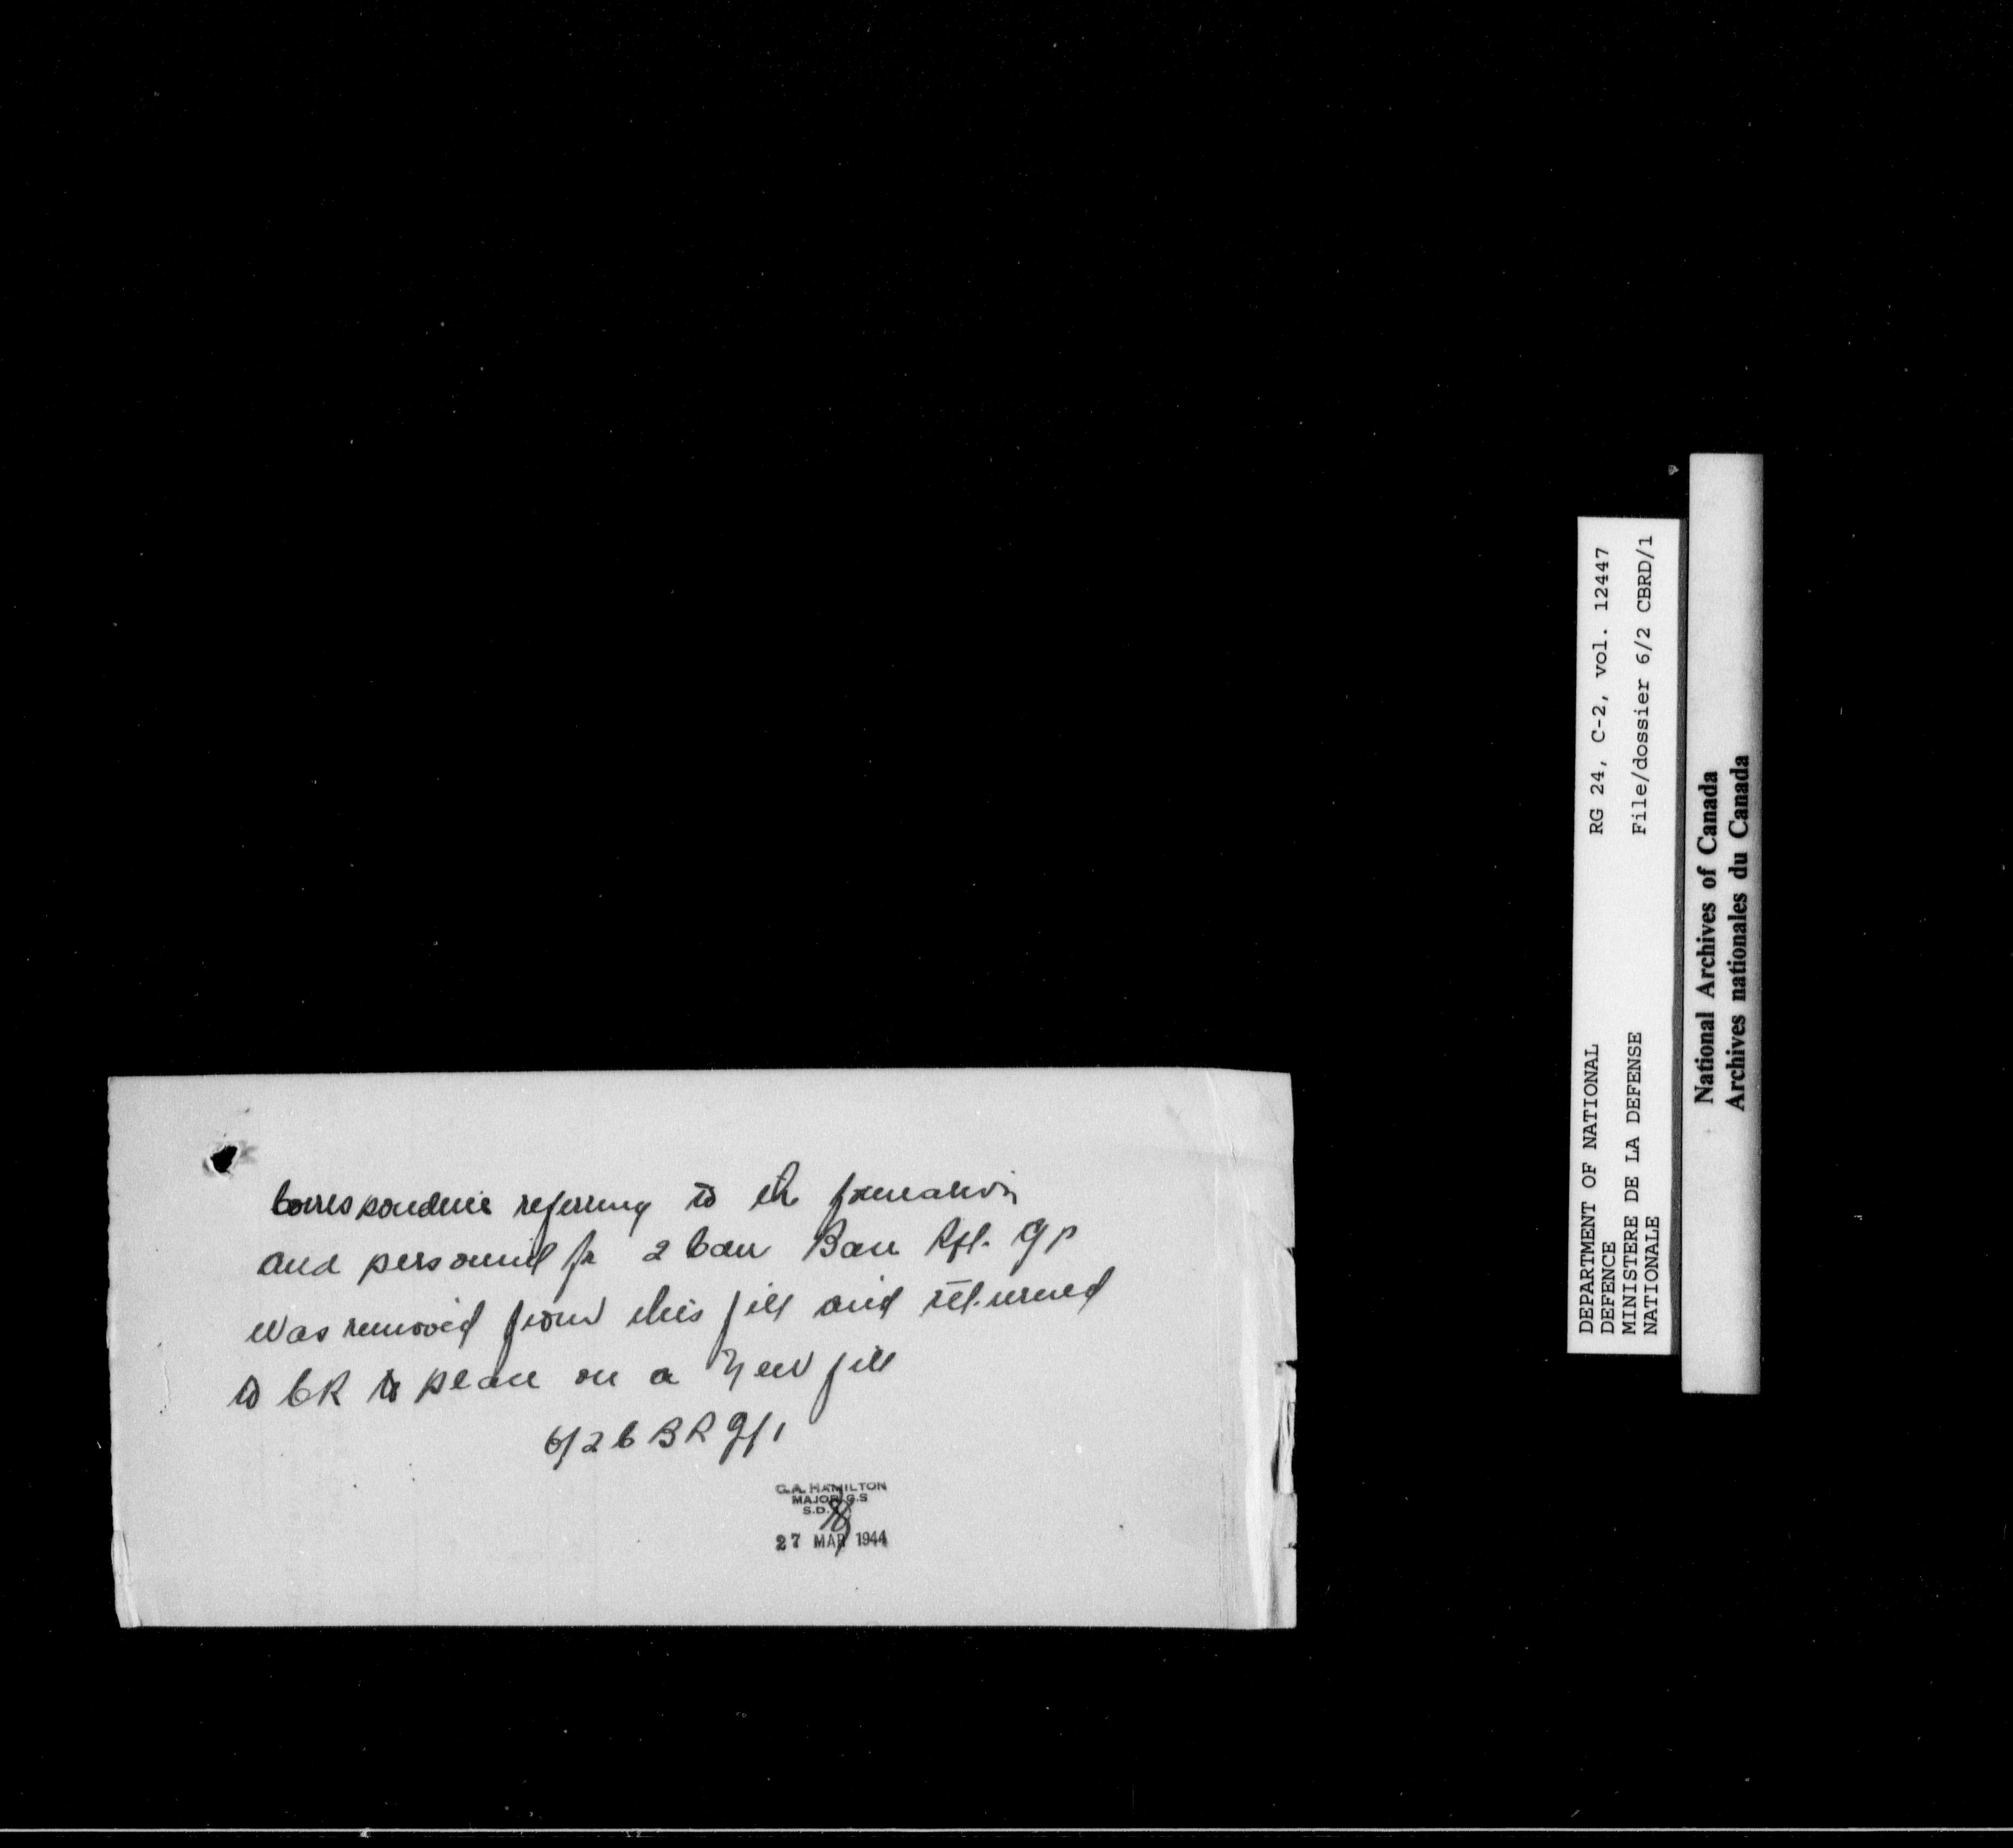 Correspondence referring to the formation
and personnel for 2 Can Base Rft. Gp
was removed from this file and returned
to CR to place on a new file
6/2 C B R G/1
G.A. HAMILTON
MAJOR G.S
S.D.
27 MAR 1944
DEPARTMENT OF NATIONAL RG 24, C-2, vol. 12447
DEFENCE
MINISTERE DE LA DEFENSE File/dossier 6/2 CBRD/1
NATIONALE
National Archives of Canada
Archives nationales du Canada